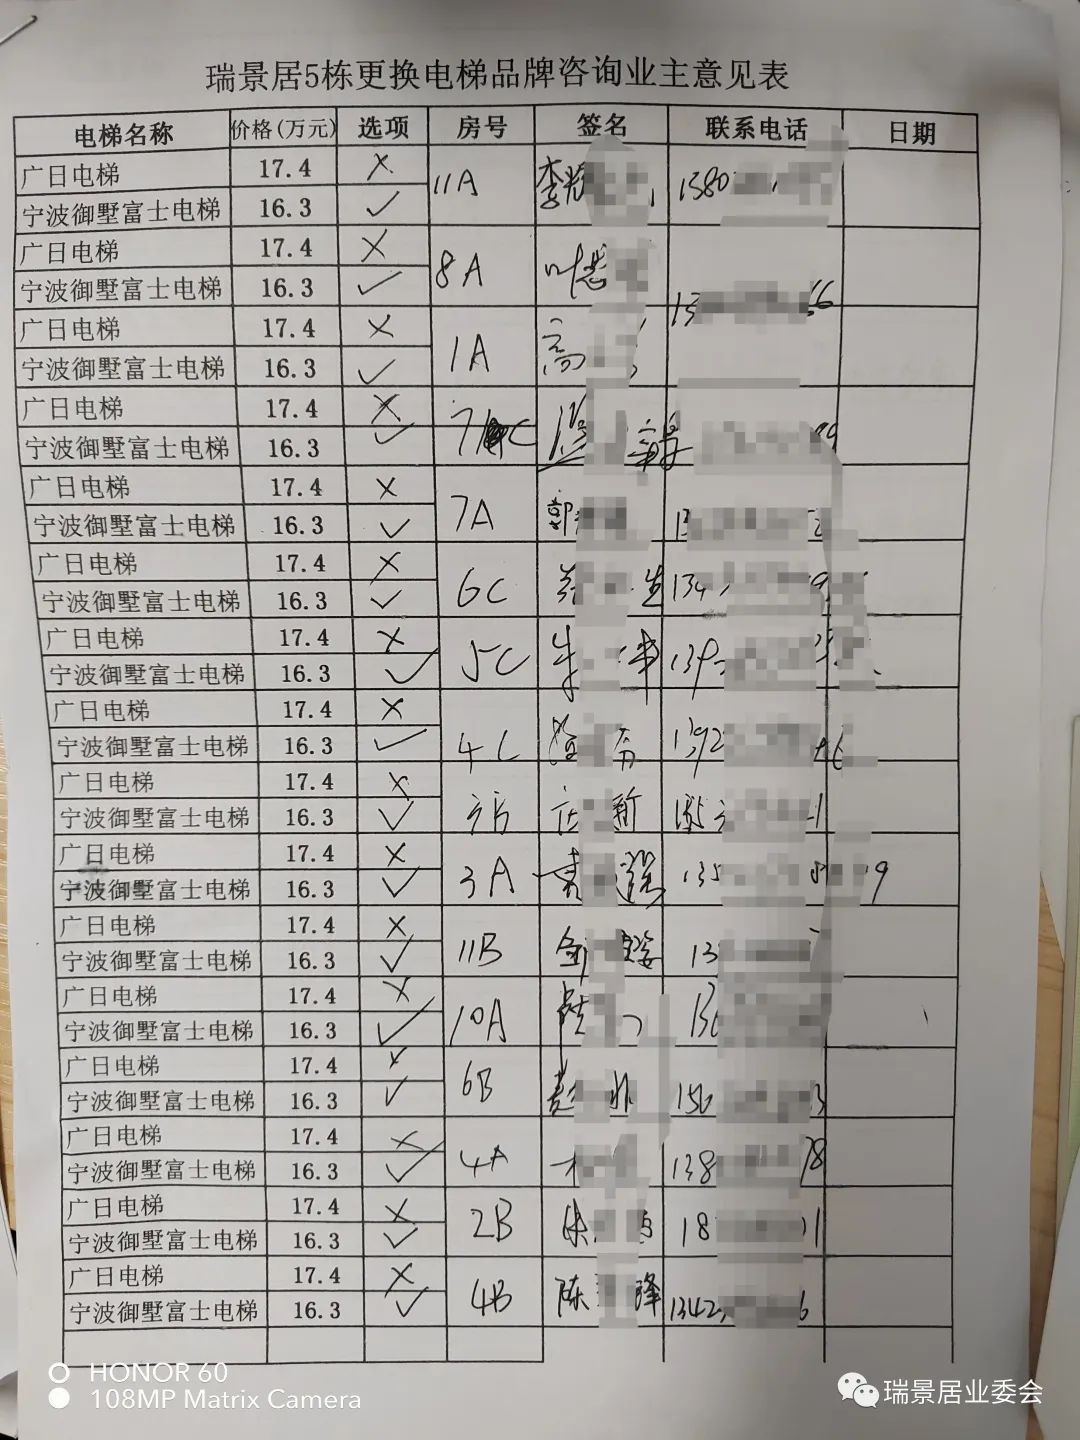 瑞景居5栋更换电梯品牌咨询业主意见表
电梯名称 价格(万元) 选项 房号 签名 联系电话 日期
广日电梯 17.4 ×
11A 李 1380
宁波御墅富士电梯 16.3 ✓
广日电梯 17.4 ×
8A 叶 13 66
宁波御墅富士电梯 16.3 ✓
广日电梯 17.4 ×
1A 高
宁波御墅富士电梯 16.3 ✓
广日电梯 17.4 ×
7 C
宁波御墅富士电梯 16.3 ✓
广日电梯 17.4 ×
7A 郭
宁波御墅富士电梯 16.3 ✓
广日电梯 17.4 ×
6C 生 134
宁波御墅富士电梯 16.3 ✓
广日电梯 17.4 ×
5C 139
宁波御墅富士电梯 16.3 ✓
广日电梯 17.4 ×
4C 1392
宁波御墅富士电梯 16.3 ✓
广日电梯 17.4 ×
新
宁波御墅富士电梯 16.3 ✓
广日电梯 17.4 ×
3A 袁 135 9
宁波御墅富士电梯 16.3 ✓
广日电梯 17.4 ×
11B 13
宁波御墅富士电梯 16.3 ✓
广日电梯 17.4 ×
10A 136
宁波御墅富士电梯 16.3 ✓
广日电梯 17.4 ×
6B 彭 156 3
宁波御墅富士电梯 16.3 ✓
广日电梯 17.4 ×
4A 138 78
宁波御墅富士电梯 16.3 ✓
广日电梯 17.4 ×
2B 18 1
宁波御墅富士电梯 16.3 ✓
广日电梯 17.4 ×
4B 陈 锋 1342 6
宁波御墅富士电梯 16.3 ✓
HONOR 60
108MP Matrix Camera
瑞景居业委会